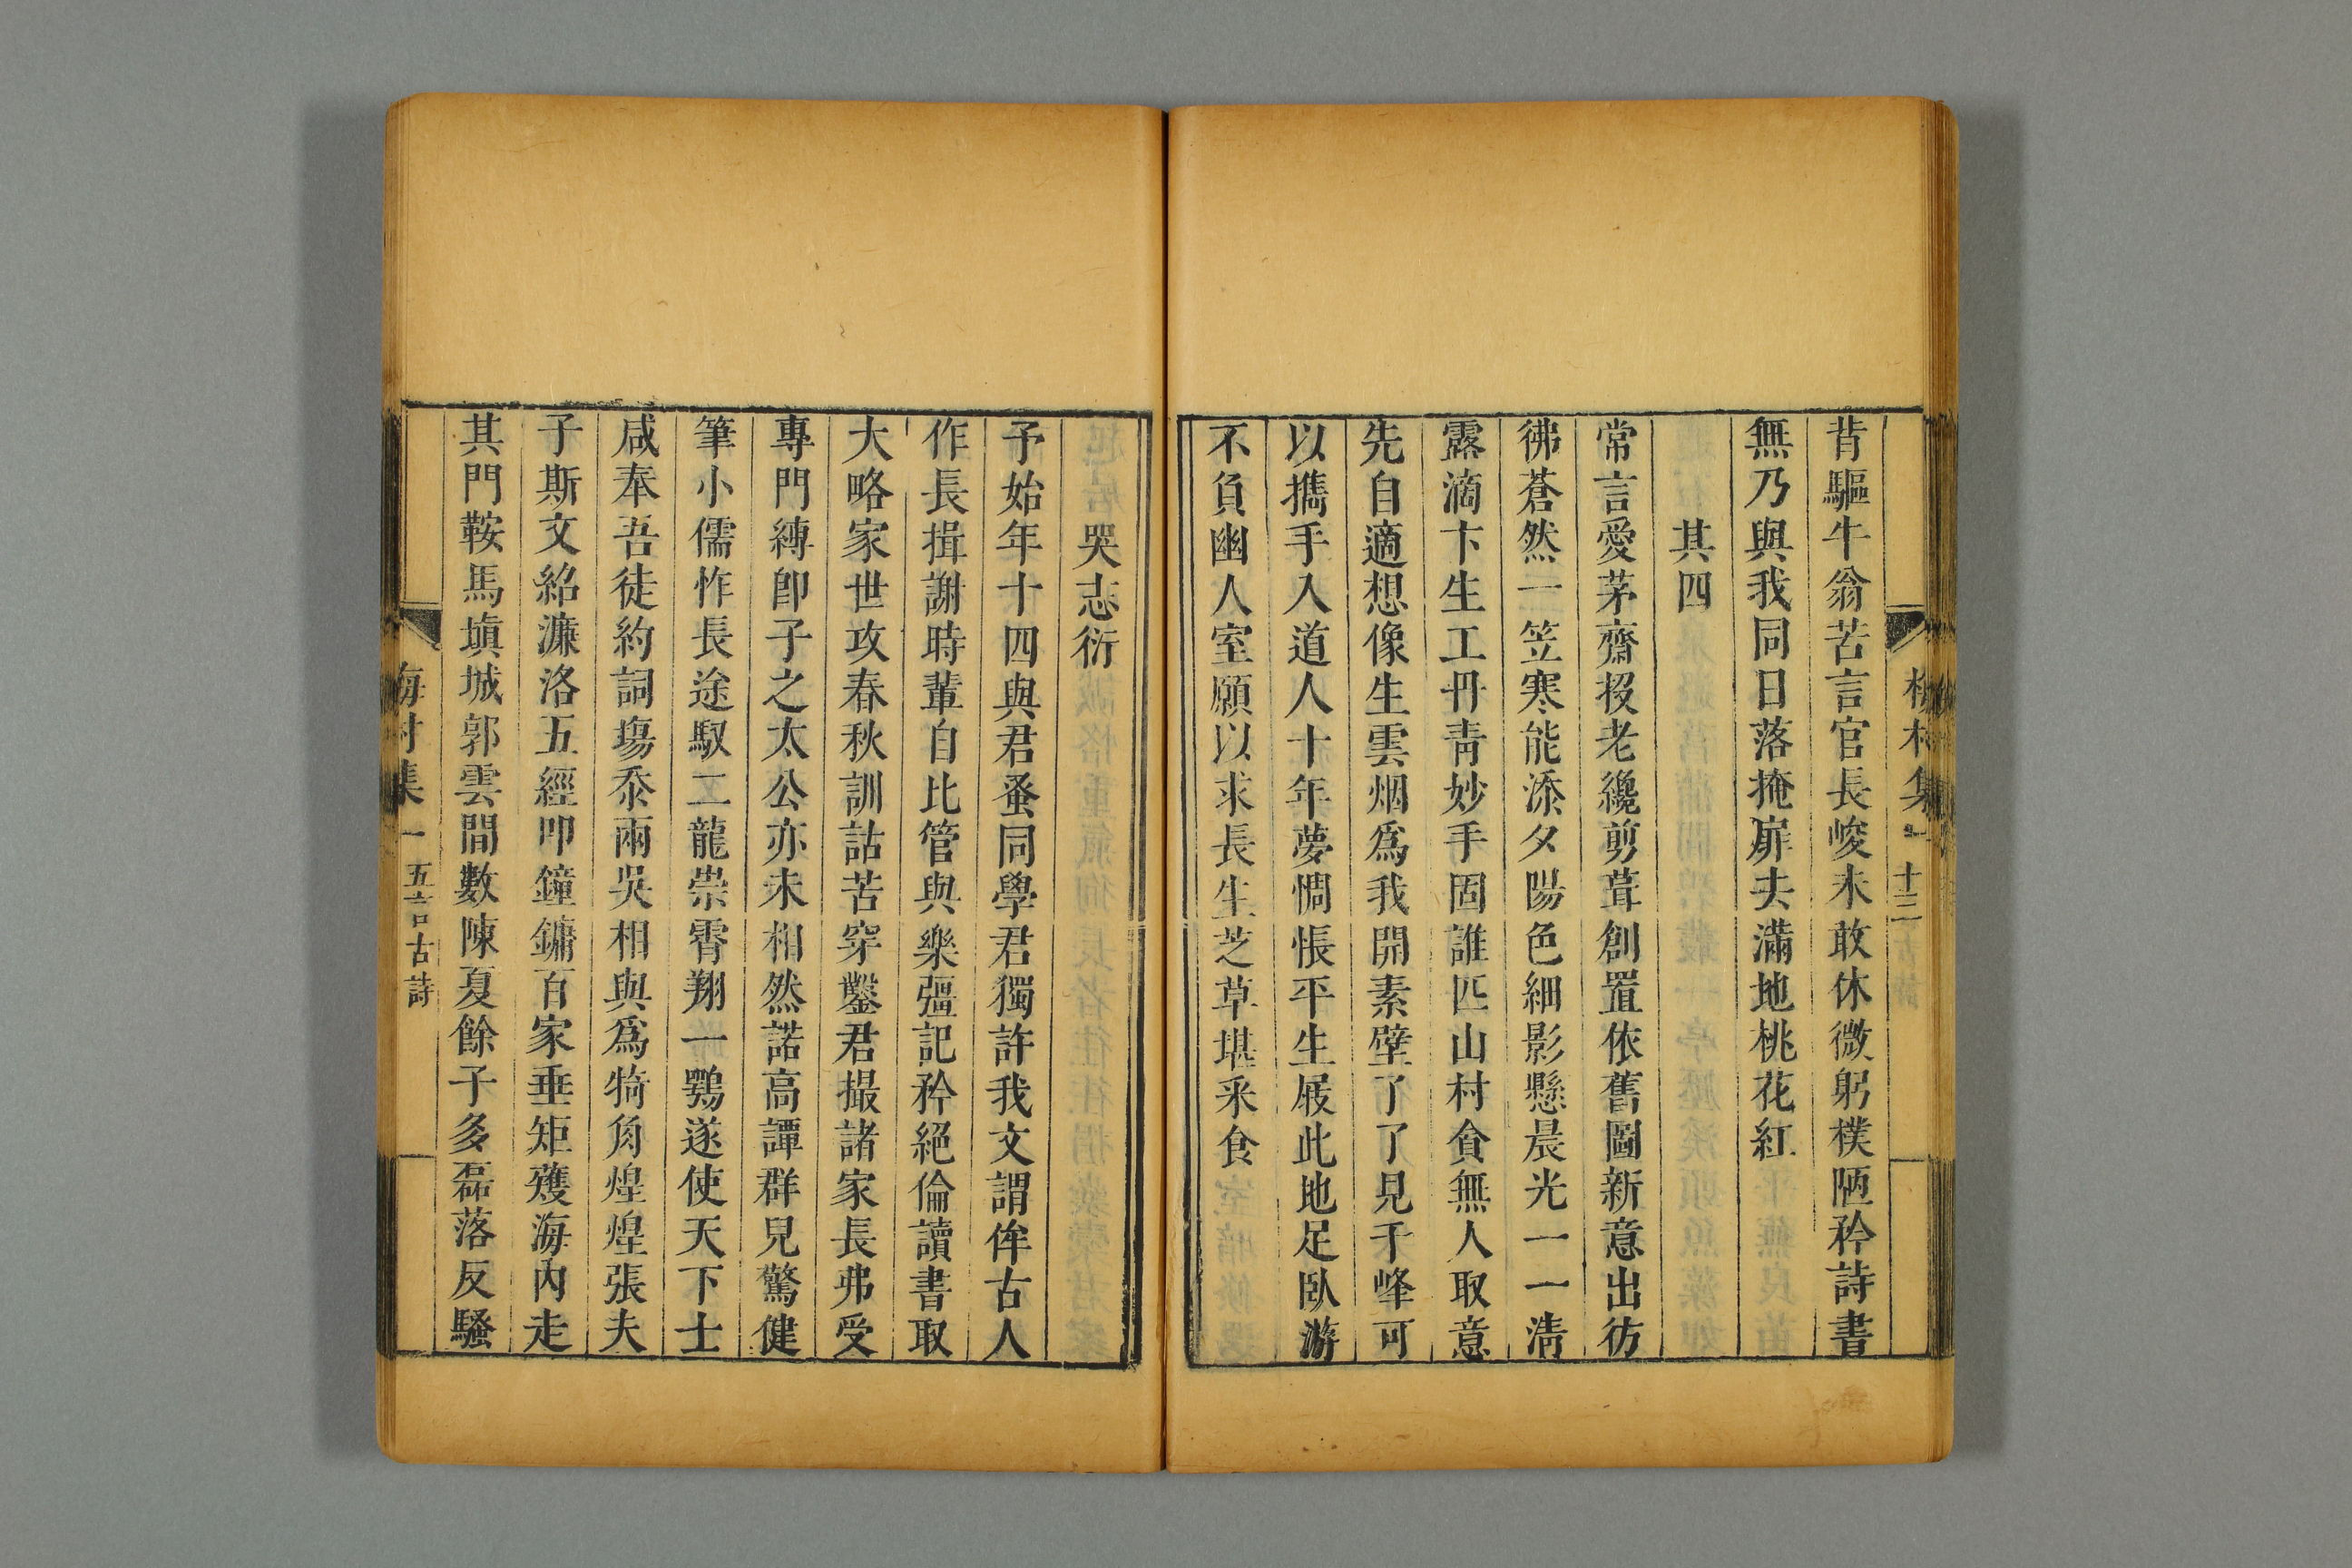 梅村集一 十三
背驅牛翁苦言官長峻未敢休微躬樸陋矜詩書
無乃與我同日落掩扉去滿地桃花紅
其四
常言愛茅齋投老纔剪葺創置依舊圖新意出彷
彿蒼然一笠寒能添夕陽色細影懸晨光一一清
露滴卞生工丹青妙手固誰匹山村貪無人取意
先自適想像生雲烟爲我開素壁了了見千峰可
以攜手入道人十年夢惆悵平生屐此地足臥游
不負幽人室願以求長生芝草堪采食
哭志衍
予始年十四與君蚤同學君獨許我文謂侔古人
作長揖謝時輩自比管與樂彊記矜絕倫讀書取
大略家世攻春秋訓詁苦穿鑿君撮諸家長弗受
專門縛卽子之太公亦未相然諾高譚群兒驚健
筆小儒怍長途馭二龍崇霄翔一鶚遂使天下士
咸奉吾徒約詞塲忝兩吳相與爲犄角煌煌張夫
子斯文紹濂洛五經叩鐘鏞百家垂矩矱海內走
其門鞍馬塡城郭雲間數陳夏餘子多磊落反騷
梅村集一 五言古詩